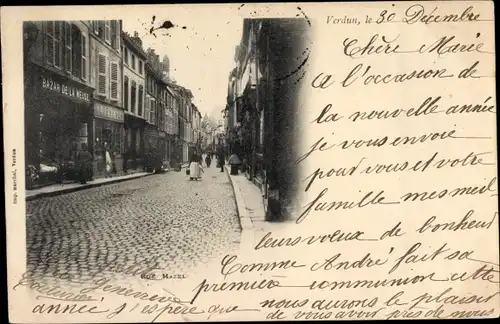 Verdun, le 30 Décembre
Chère Marie
A l'occasion de
la nouvelle année
je vous envoie
pour vous et votre
famille mes meil
leurs voeux de bonheur
Comme André fait sa
première communion cette
année j'espère que nous aurons le plaisir
de vous avoir près de nous
BAZAR DE LA MEUSE
RUE MAZEL
Imp. marchal, Verdun